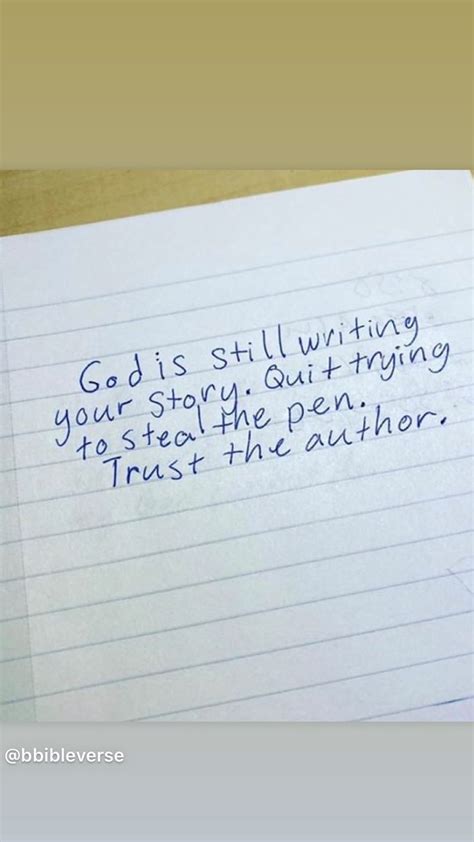 God is still writing
your story. Quit trying
to steal the pen.
Trust the author.
@bbibleverse